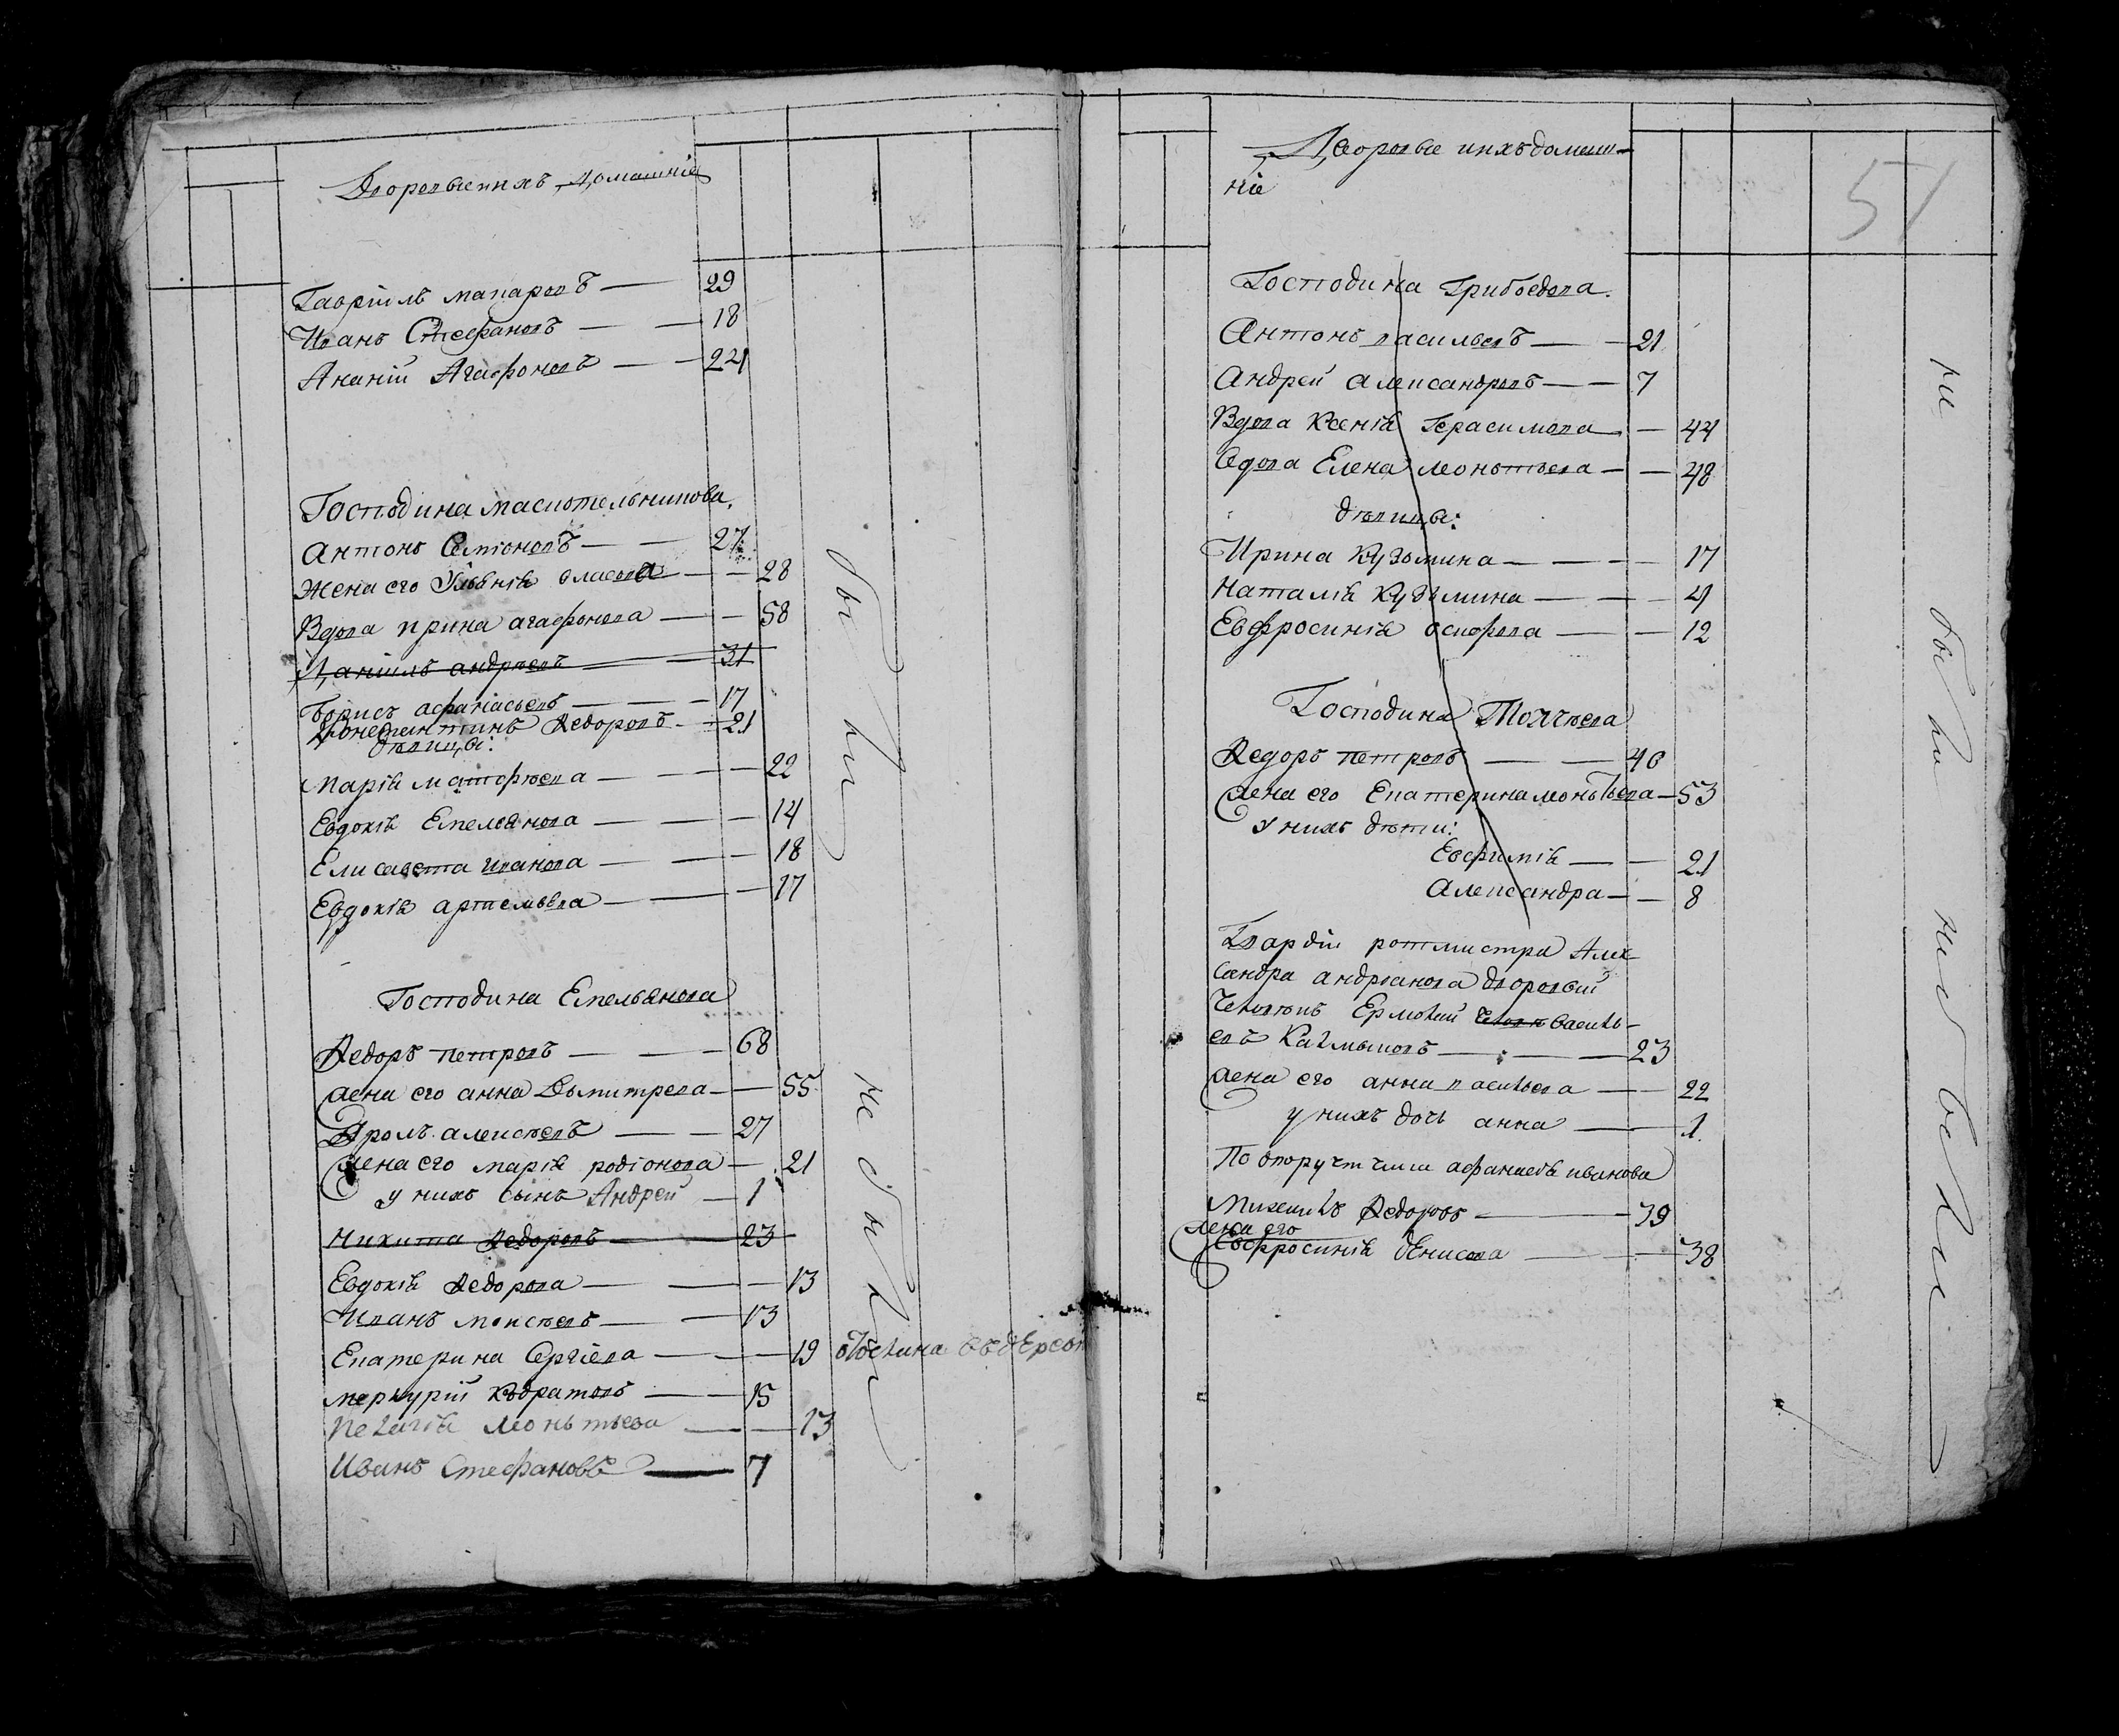 Дворовые ихъ домашніе
Гавріилъ макаровъ — 29
Иванъ Стефановъ — 18
Ананій Агафоновъ — 24
Господина маслотельникова.
Антонъ Семіоновъ — 27
Жена его Ульянія власова — 28
Вдова ирина агафонова — 58
Даніилъ андреевъ — 31
Борисъ афанасьевъ — 17
Констянтинъ Ѳедоровъ — 21
дѣвицы:
марія матофѣева — 22
Евдокія Емельянова — 14
Елисавета иванова — 18
Евдокія артемьева — 17
Господина Емельянова
Ѳедоръ петровъ — 68
жена его анна Дьмитрева — 55
Фролъ алексѣевъ — 27
жена его марія родіонова — 21
у нихъ сынъ Андрей — 1
Никита Ѳедоровъ — 23
Евдокія Ѳедорова — 13
Иванъ моисѣевъ — 13
Екатерина Сергіева — 19
меркурій кодратовъ — 15
Пелагія Леоньтьева — 13
Иванъ Стефановъ — 7
были
не были
Дворовые ихъ домаш-
ніе
51
Господина Грибоедова.
Антонъ васильевъ — 21
Андрей александровъ — 7
Вдова Ксенія Герасимова — 44
Вдова Елена леоньтьева — 48
дѣвицы:
Ирина Кузьмина — 17
Наталія Кузьмина — 4
Евфросинія осифова — 12
Господина Толчѣева
Ѳедоръ петровъ — 40
жена его Екатерина леоньтьева — 53
у нихъ дѣти:
Евфимія — 21
Александра — 8
Гвардіи ротмистра Алек-
сандра андріанова дворовый
человѣкъ Ермолай челов василь-
евъ Калмыковъ — 23
жена его анна васильева — 22
у нихъ дочь анна — 1
По афанасья иванова
Михаилъ Ѳедоровъ — 39
жена его
Евфросинія денисова — 38
не были